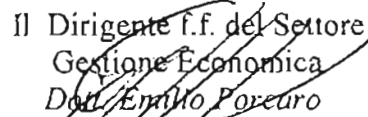 Il Dirigente f.f. del Settore
Gestione Economica
Dott. Emilio Porcaro